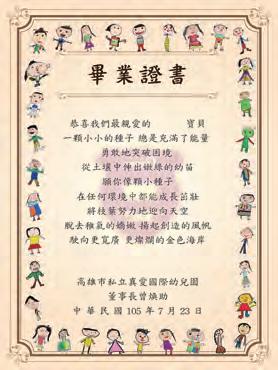 畢業證書
恭喜我們最親愛的 寶貝
一顆小小的種子 總是充滿了能量
勇敢地突破困境
從土壤中伸出嫩綠的幼苗
願你像顆小種子
在任何環境中都能成長茁壯
將枝葉努力地迎向天空
脫去稚氣的嬌嫩 揚起創造的風帆
駛向更寬廣 更燦爛的金色海岸
高雄市私立真愛國際幼兒園
董事長曾煥助
中華民國105年7月23日